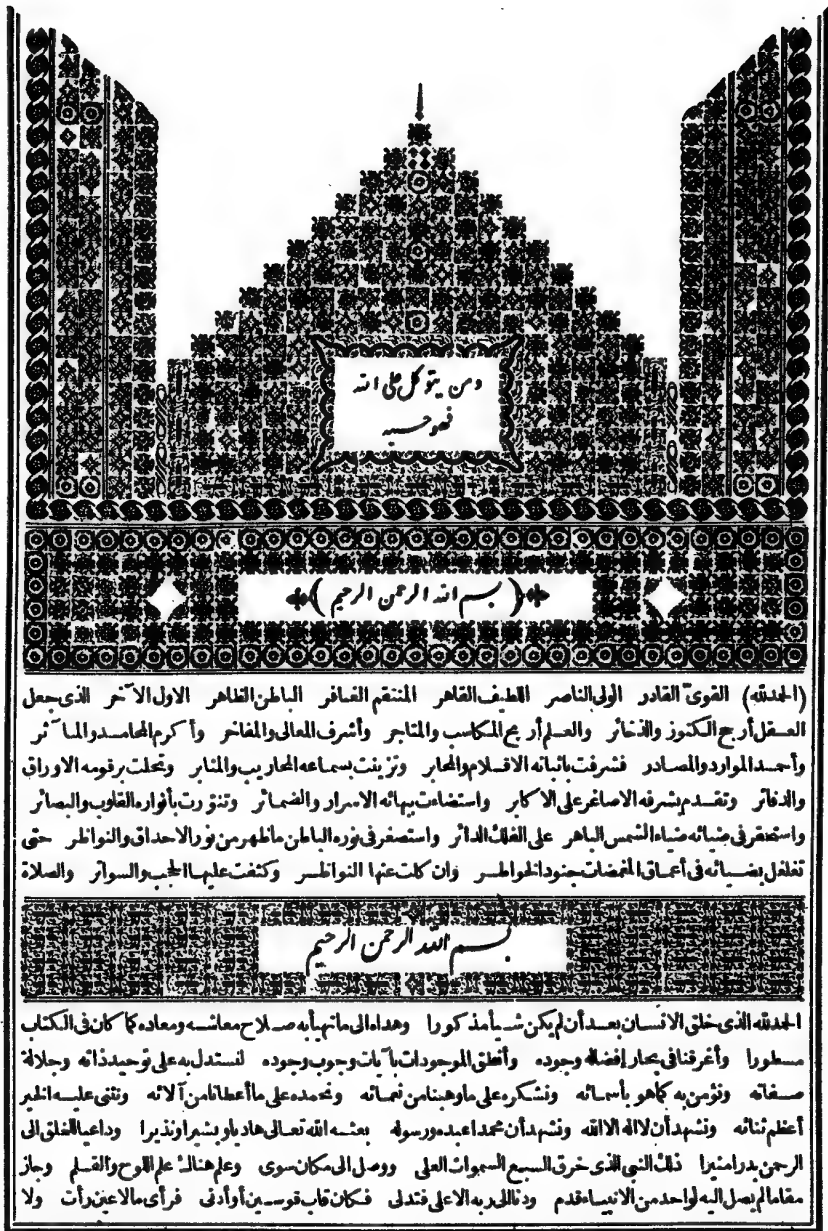 ومن يتوكل على الله
فهو حسبه
بسم الله الرحمن الرحيم
(الحمدلله) القوىّ القادر الولى الناصر اللطيف القاهر المنتقم الغافر الباطن الظاهر الاول الآخر الذى جعل
العقل أرجح الكنوز والذخائر والعلم أربح المكاسب والمتاجر وأشرف المعالى والمفاخر وأكرم المحامد والمآثر
وأحمد الموارد والمصادر فشرفت باثباته الاقلام والمحابر وتزينت بسماعه المحاريب والمنابر وتحلت برقومه الاوراق
والدفاتر وتقدم بشرفه الاصاغر على الاكابر واستضاءت ببهائه الاسرار والضمائر وتنوّرت بأنواره القلوب والبصائر
واستحقر فى ضيائه ضياء الشمس الباهر على الفلك الدائر واستصغر فى نوره الباطن ماظهر من نور الاحداق والنواظر حتى
تغلغل بضيائه فى أعماق المغمضات جنود الخواطر وان كلت عنها النواظر وكثفت عليها الحجب والسواتر والصلاة
بسم الله الرحمن الرحيم
الحمدلله الذى خلق الانسان بعد أن لم يكن شيأ مذكورا وهداه الى ماتهيأ به صلاح معاشه ومعاده كما كان فى الكتاب
مسطورا وأغرقنا فى بحار إفضاله وجوده وأنطق الموجودات بآيات وجوب وجوده لنستدل به على توحيد ذاته وجلالة
صفاته ونؤمن به كما هو بأسمائه ونشكره على ماوهبنا من نعمائه ونحمده على ماأعطانا من آلائه ونثنى عليه الخير
أعظم ثنائه ونشهد أن لااله الاالله ونشهد أن محمدا عبده ورسوله بعثه الله تعالى هاديا وبشيرا ونذيرا وداعيا للخلق الى
الرحمن بدرا منيرا ذلك النبى الذى خرق السبع السموات العلى ووصل الى مكان سوى وعلم هنالك علم اللوح والقلم وجاز
مقاما لم يصل اليه لواحد من الانبياء قدم ودنا الى ربه الاعلى فتدلى فكان قاب قوسين أوأدنى فرأى مالاعين رأت ولا